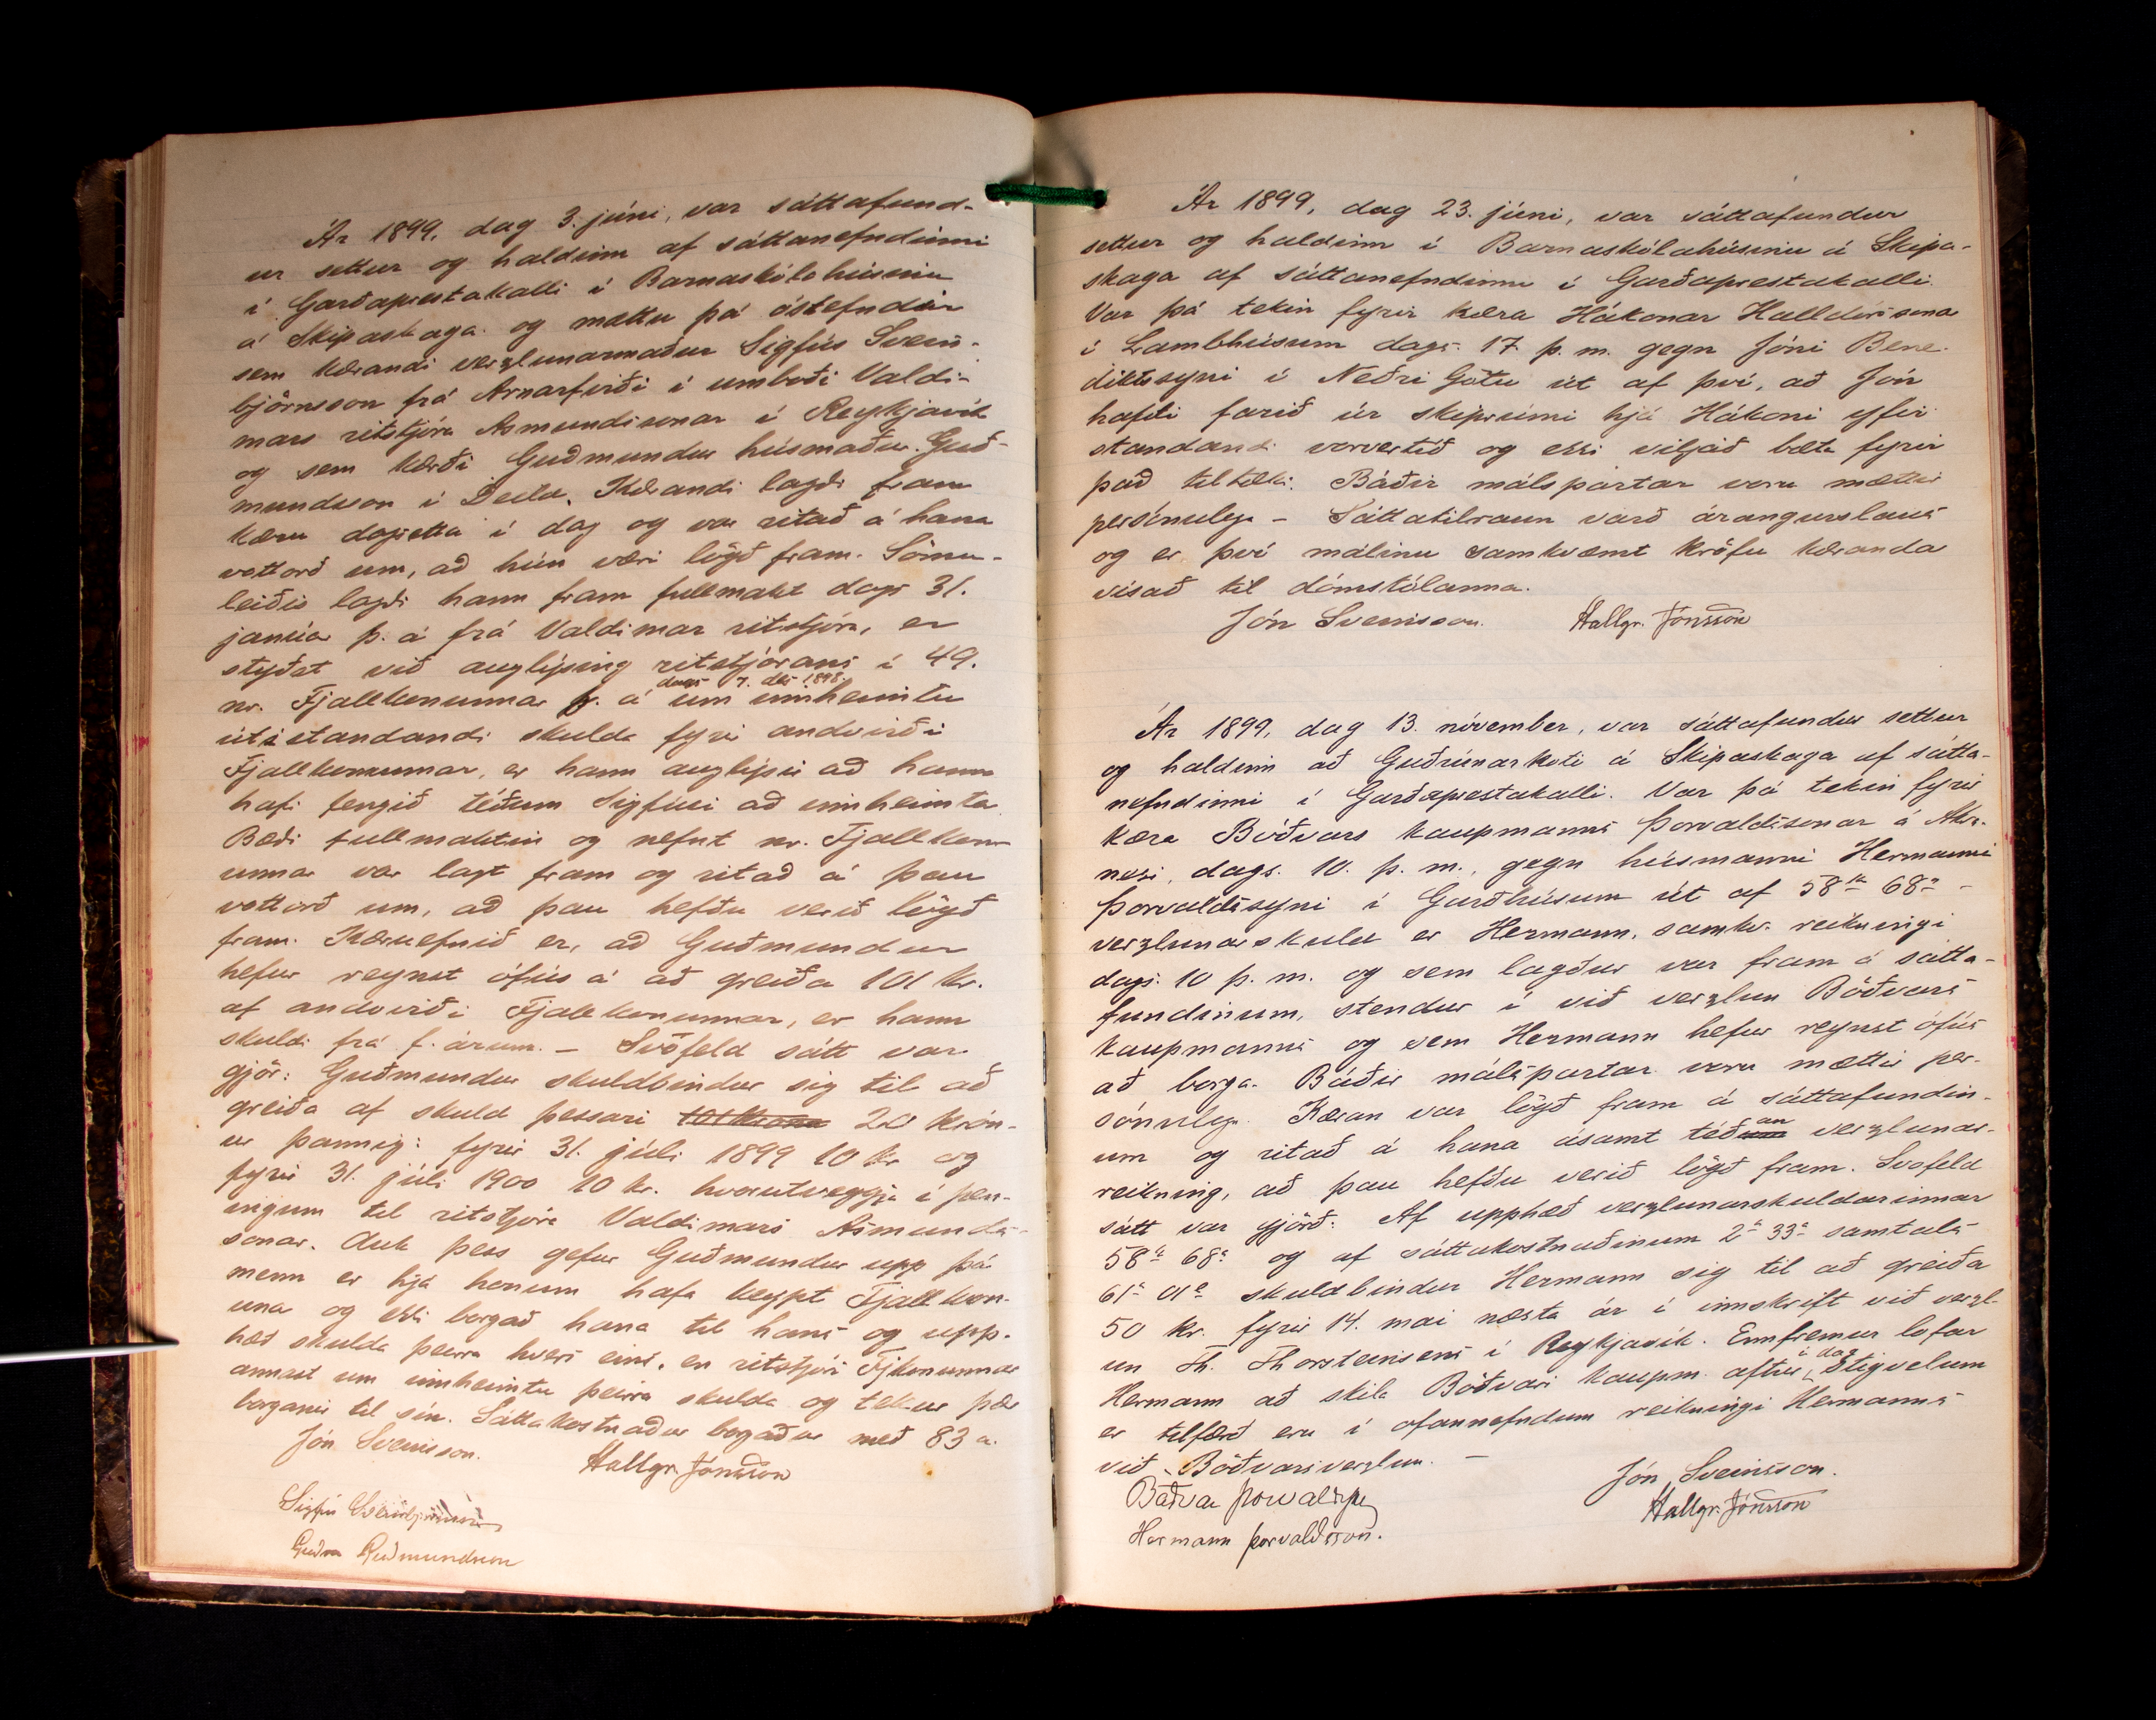 Ár 1899, dag 3. júni, var sáttafund-
ur settur og haldinn af sáttanefndinni
í Garðaprestakalli í Barnaskólahúsinu
á Skipaskaga og mættu þá óstefndir
sem kærandi verzlunarmaður Sigfús Svein-
björnsson frá Arnarfirði í umboði Valdi-
mars ritstjóra Asmundssonar í Reykjavík
og sem kærði Guðmundur húsmaður Guð-
mundsson í Deild. Kærandi lagði fram
kæru dagsetta í dag og var ritað á hana
vottorð um, að hún væri lögð fram. Sömu-
leiðis lagði hann fram fullmakt dags 31.
janúar þ. á frá Valdimar ritstjóra, er
styðst við auglýsing ritstjórans í 49.
dags 7. des 1898.
nr. Fjallkonunnar f. á um innheimtu
útistandandi skulda fyrir andvirði
Fjallkonunnar, er hann auglýsir að hann
hafi fengið téðum Sigfúsi að innheimta.
Bæði fullmaktin og nefnt nr. Fjallkon-
unnar var lagt fram og ritað á þau
vottorð um, að þau hefðu verið lögð
fram. Kæruefnið er, að Guðmundur
hefur reynst ófús á að greiða 101 kr.
af andvirði Fjallkonunnar, er hann
skuldi frá f. árum. – Svofeld sátt var
gjör: Guðmundur skuldbindur sig til að
greiða af skuld þessari 101 krona 20 krón-
ur þannig: fyrir 31. júli 1899 10 kr og
fyrir 31. júli 1900 10 kr. hvorutveggja í pen-
ingum til ritstjóra Valdimars Asmunds-
sonar. Auk þess gefur Guðmundur upp þá
menn er hjá honum hafa keypt Fjallkon-
una og ekki borgað hana til hans og upp-
hæð skulda þeirra hvers eins, en ritstjóri Fjkonunnar
annast um innheimtu þeirra skulda og tekur þær
borganir til sín. Sáttakostnaður borgaður með 83 a.
Jón Sveinsson.
Hallgr. Jónsson
Sigfús Sveinbjörnsson
Guðm Guðmundsson
Ár 1899, dag 23. júni, var sáttafundur
settur og haldinn í Barnaskólahúsinu á Skipa-
skaga af sáttanefndinni í Garðaprestakalli.
Var þá tekin fyrir kæra Hákonar Halldórssonar
í Lambhúsum dags. 17. þ. m. gegn Jóni Bene-
diktssyni í Neðri Götu út af því, að Jón
hafði farið úr skiprúmi hjá Hákoni yfir
standandi vorvertíð og ekki viljað bæta fyrir
það tiltæki. Báðir málspartar voru mættir
persónulega – Sáttatilraun varð árangurslaus
og er því málinu samkvæmt kröfu kæranda
vísað til dómstólanna.
Jón Sveinsson. Hallgr. Jónsson
Ár 1899, dag 13. nóvember, var sáttafundur settur
og haldinn að Guðrúnarkoti á Skipaskaga af sátta-
nefndinni í Garðaprestakalli. Var þá tekin fyrir
kæra Böðvars kaupmanns Þorvaldssonar á Akra-
nesi, dags. 10. þ. m., gegn húsmanni Hermanni
Þorvaldssyni í Garðhúsum út af 58 kr 68 a
verzlunarskuld er Hermann, samkv. reikningi
dags. 10 þ. m. og sem lagður var fram á sátta-
fundinum, stendur í við verzlun Böðvars
kaupmanns og sem Hermann hefur reynst ófús
að borga. Báðir málspartar voru mættir per-
sónulega. Kæran var lögð fram á sáttafundin-
um og ritað á hana ásamt téðum an verzlunar-
reikning, að þau hefðu verið lögð fram. Svofeld
sátt var gjörð: Af upphæð verzlunarskuldarinnar
58 kr 68 a og af sáttakostnaðinum 2 kr 33 a samtals
61 kr 01 a skuldbindur Hermann sig til að greiða
50 kr. fyrir 14. mai næsta ár í innskrift við verzl-
un Th. Thorsteinsens í Reykjavík. Ennfremur lofar
Hermann að skila Böðvari kaupm. aftur í dag Stigvelum
er tilfærð eru í ofannefndum reikningi Hermanns
við Böðvarsverzlun. –
Jón Sveinsson.
Böðvar Þorvaldss
Hallgr. Jónsson
Hermann Þorvaldsson.